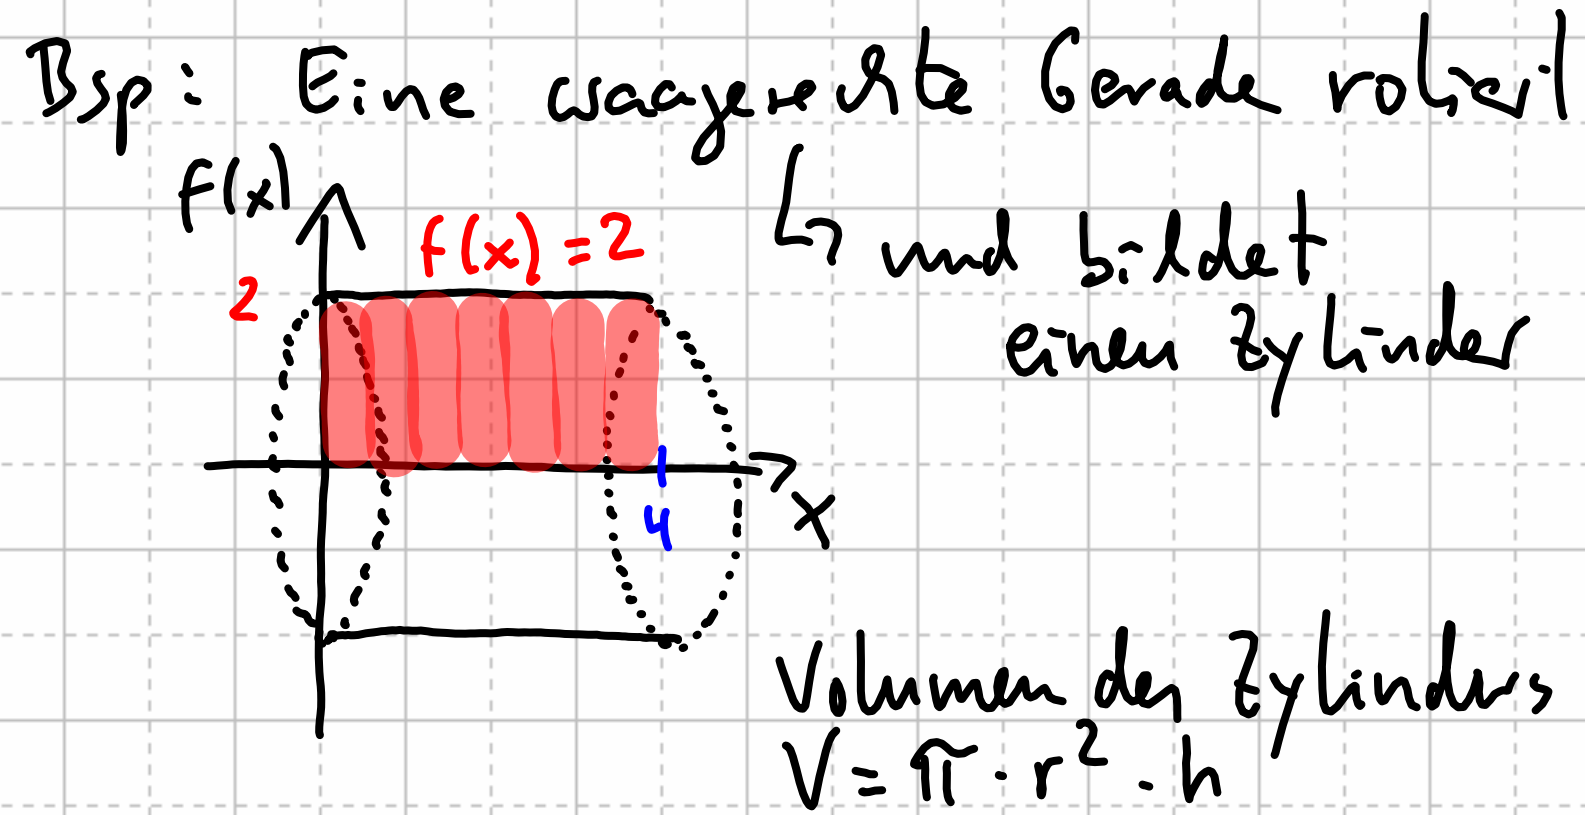 Bsp: Eine waagerechte Gerade rotiert
f(x)
f(x) = 2
2
und bildet
einen Zylinder
4
x
Volumen des Zylinders
V = π · r² · h